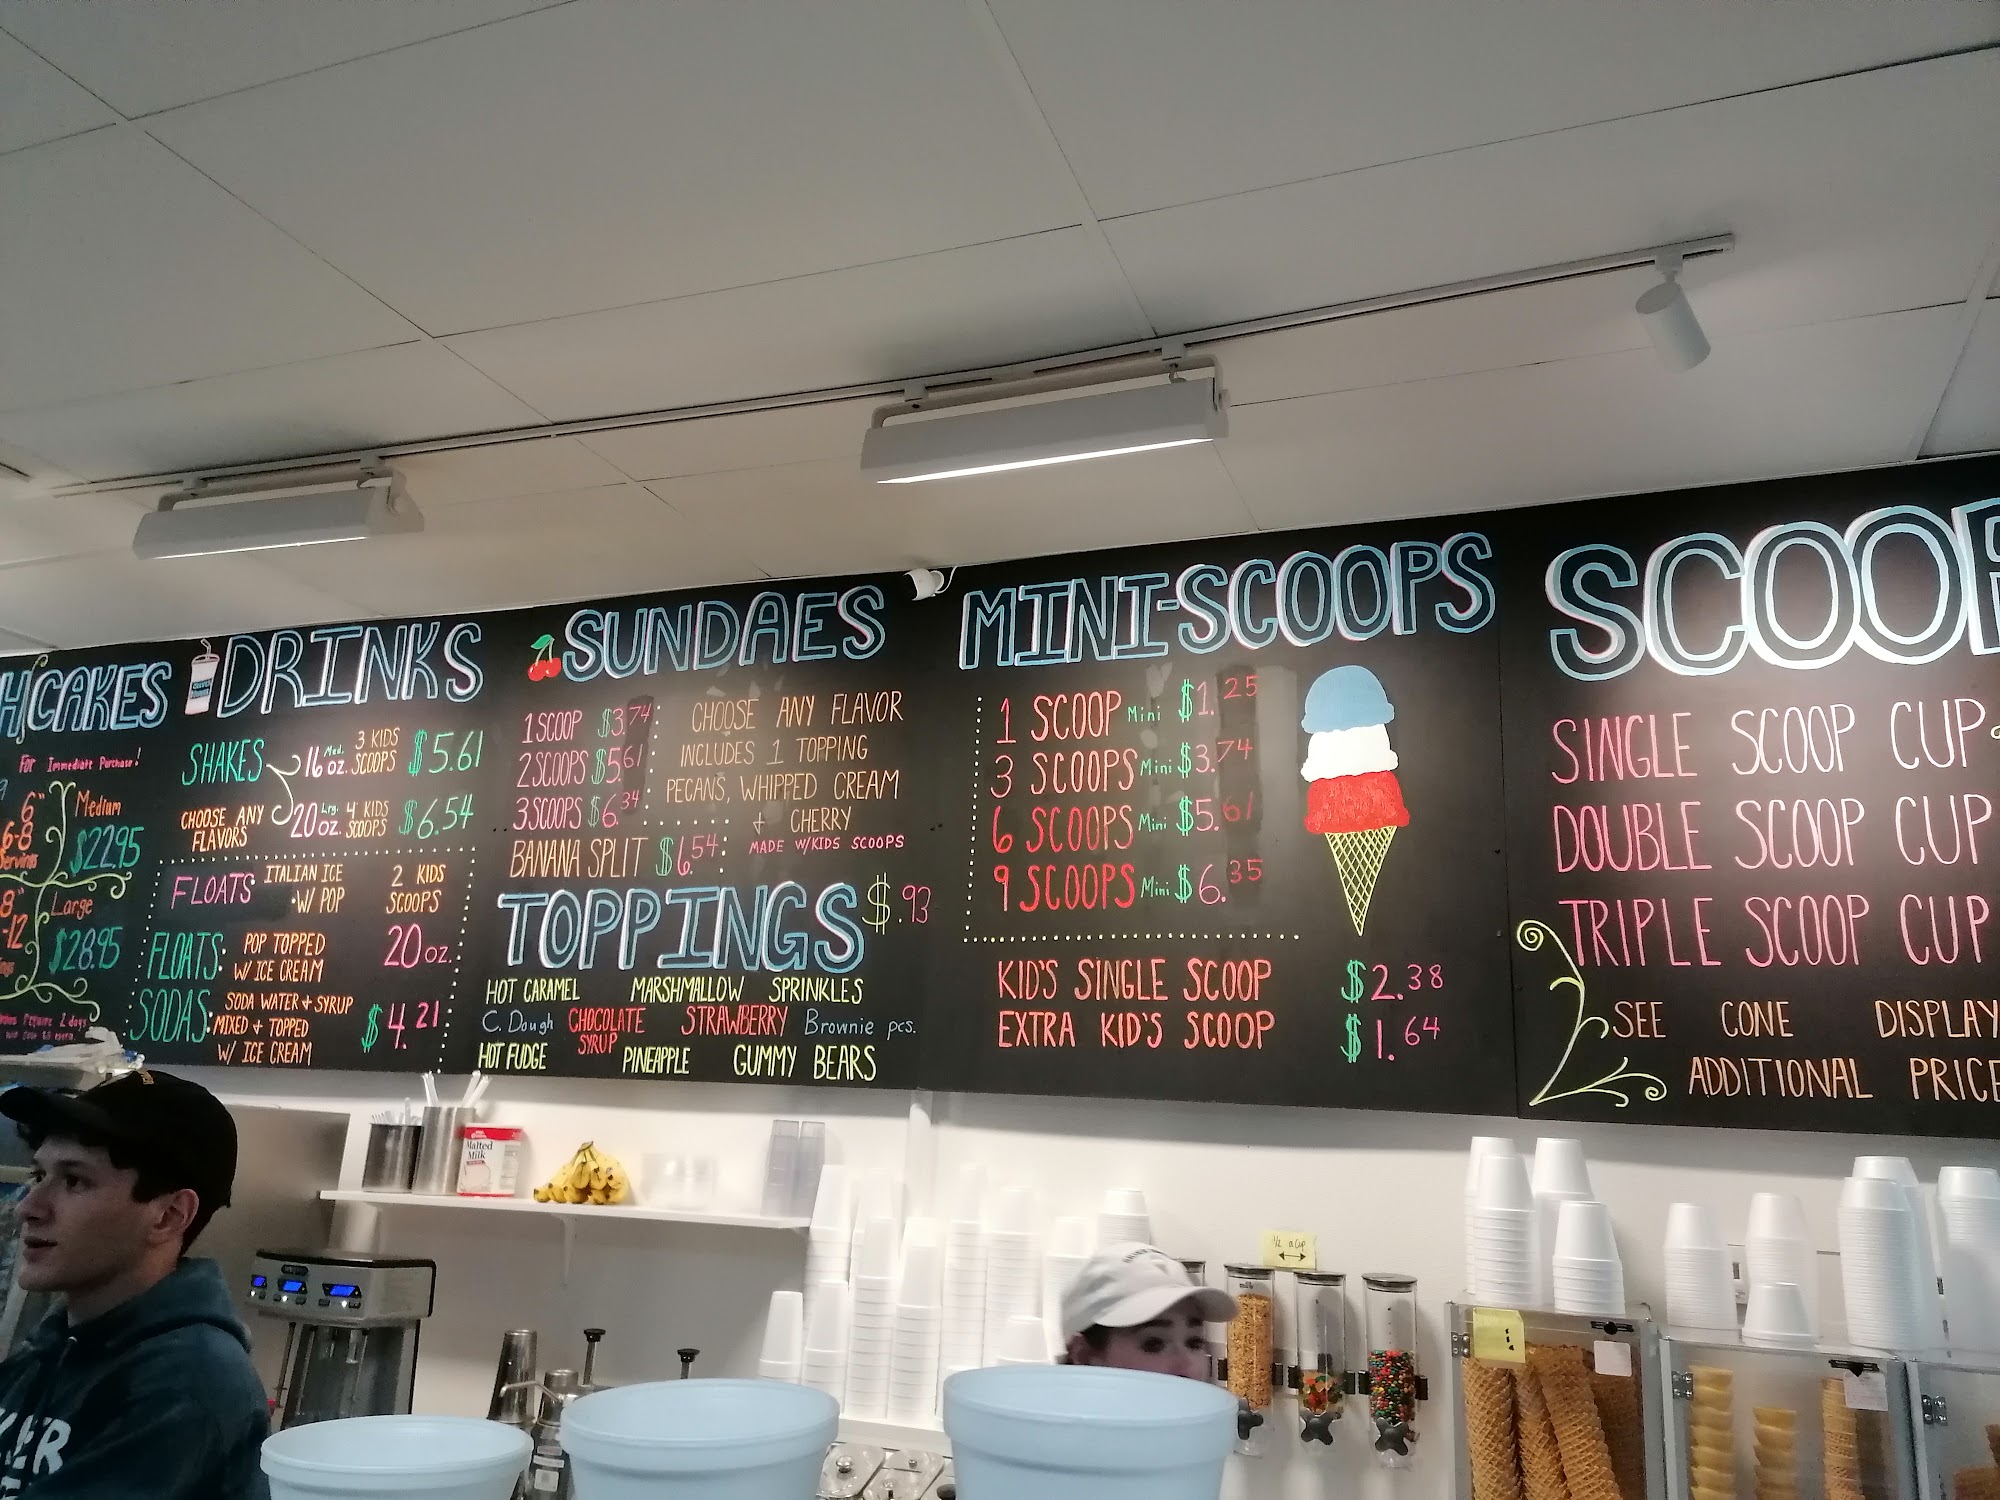 HCAKES
For Immediate Purchase!
6" Medium
6-8
Servings $22.95
8" Large
-12 $28.95
DRINKS
SHAKES 16 oz. Med. 3 KIDS SCOOPS $5.61
CHOOSE ANY FLAVORS 20 oz. Lrg. 4 KIDS SCOOPS $6.54
FLOATS: ITALIAN ICE 2 KIDS
W/ POP SCOOPS
FLOATS: POP TOPPED 20 oz.
W/ ICE CREAM
SODAS: SODA WATER + SYRUP
MIXED + TOPPED $4.21
W/ ICE CREAM
SUNDAES
1 SCOOP $3.74
2 SCOOPS $5.61
3 SCOOPS $6.34
BANANA SPLIT $6.54
CHOOSE ANY FLAVOR
INCLUDES 1 TOPPING
PECANS, WHIPPED CREAM
+ CHERRY
MADE W/KIDS SCOOPS
TOPPINGS $.93
HOT CARAMEL MARSHMALLOW SPRINKLES
C. Dough CHOCOLATE SYRUP STRAWBERRY Brownie pcs.
HOT FUDGE PINEAPPLE GUMMY BEARS
MINI-SCOOPS
1 SCOOP Mini $1.25
3 SCOOPS Mini $3.74
6 SCOOPS Mini $5.61
9 SCOOPS Mini $6.35
KID'S SINGLE SCOOP $2.38
EXTRA KID'S SCOOP $1.64
SCOOP
SINGLE SCOOP CUP
DOUBLE SCOOP CUP
TRIPLE SCOOP CUP
SEE CONE DISPLAY
ADDITIONAL PRICE
Malted
Milk
1/2 a cup